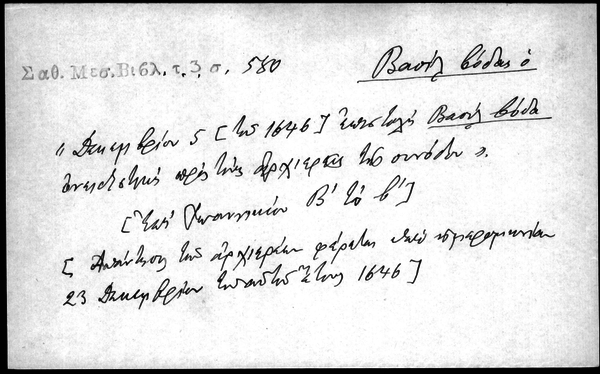 Σαθ. Μεσ. Βιβλ. τ. 3, σ. 580
Βασίλ βόδας ὁ
« Δεκεμβρίου 5 [τοῦ 1646] Ἐπιστολὴ Βασίλ βόδα
ὀνειδιστικὴ πρὸς τοὺς ἀρχιερεῖς τῆς συνόδου ».
[Ἐπὶ Ἰωαννικίου Β' τὸ β']
[Ἀπάντησις τῶν ἀρχιερέων φέρεται ὑπὸ ἡμερομηνίαν
23 Δεκεμβρίου τοῦ αὐτοῦ ἔτους 1646]